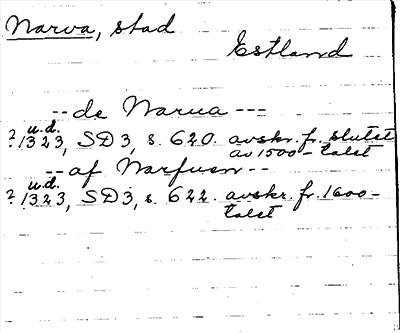 Narva, stad
Estland
-- de Narua ---
u.d.
? 1323, SD 3, s. 620. avskr. fr. slutet
av 1500-talet
-- af Narfuen --
u.d.
? 1323, SD 3, s. 622. avskr. fr. 1600-
talet